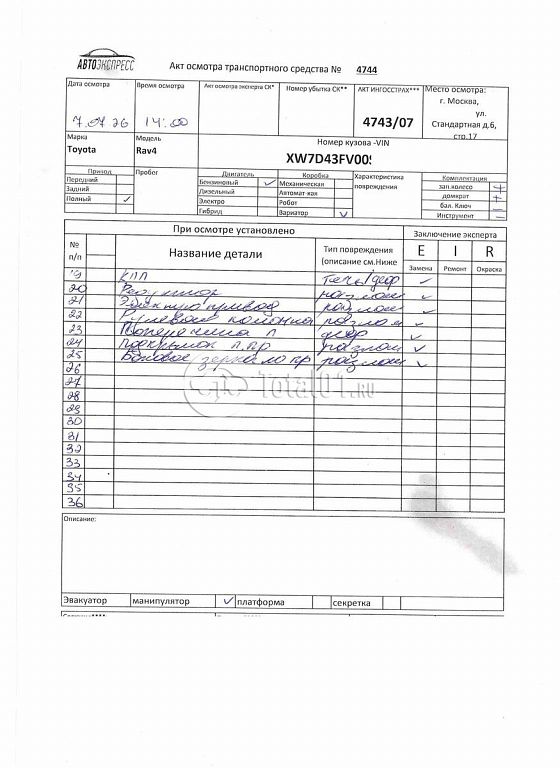 АВТОЭКСПРЕСС
Акт осмотра транспортного средства № 4744
Дата осмотра Время осмотра Акт осмотра эксперта СК* Номер убытка СК** АКТ ИНГОССТРАХ*** Место осмотра:
г. Москва,
ул.
7.07.26 14:00 4743/07 Стандартная д.6,
стр.17
Марка Модель Номер кузова -VIN
Toyota Rav4 XW7D43FV00
Привод Пробег Двигатель Коробка Характеристика повреждения Комплектация
Передний Бензиновый ✓ Механическая зап.колесо +
Задний Дизельный Автомат-кая домкрат +
Полный ✓ Электро Робот бал. Ключ –
Гибрид Вариатор ✓ Инструмент –
При осмотре установлено Заключение эксперта
№ п/п Название детали Тип повреждения (описание см.Ниже E I R
Замена Ремонт Окраска
19 КПП течь/деф ✓
20 Редуктор разлом ✓
21 Электропривод разлом ✓
22 Рулевая колонка разлом ✓
23 Поперечина п деф ✓
24 Подкрылок п.пр разлом ✓
25 Боковое зеркало пр разлом ✓
26
27
Total01.RU
28
29
30
31
32
33
34
35
36
Описание:
Эвакуатор манипулятор ✓ платформа секретка